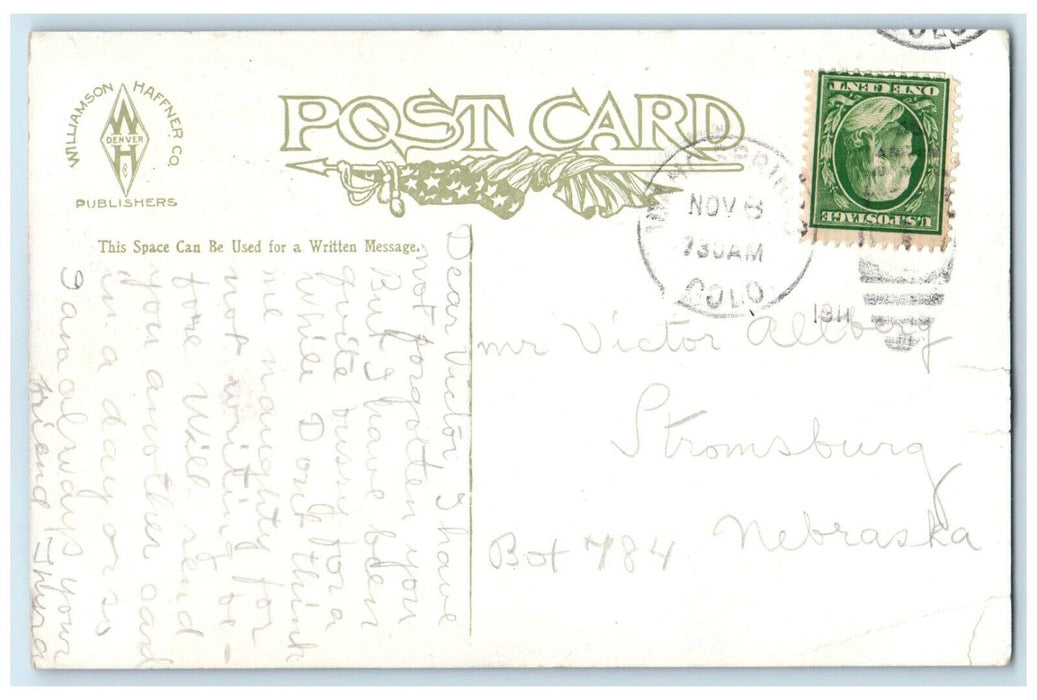 WILLIAMSON HAFFNER CO.
W
DENVER
H
PUBLISHERS
POST CARD
This Space Can Be Used for a Written Message.
COLO
NOV 6
730AM
COLO.
1911
ONE CENT
U.S. POSTAGE
Dear Victor I have
not forgoten you
But I have been
quite bussy for a
while Dont think
me naughty for
not writing be-
fore Will send
you another card
in a day or so
I am always your
friend Thyra
mr Victor Allberg
Stromsburg
Box 784 Nebraska